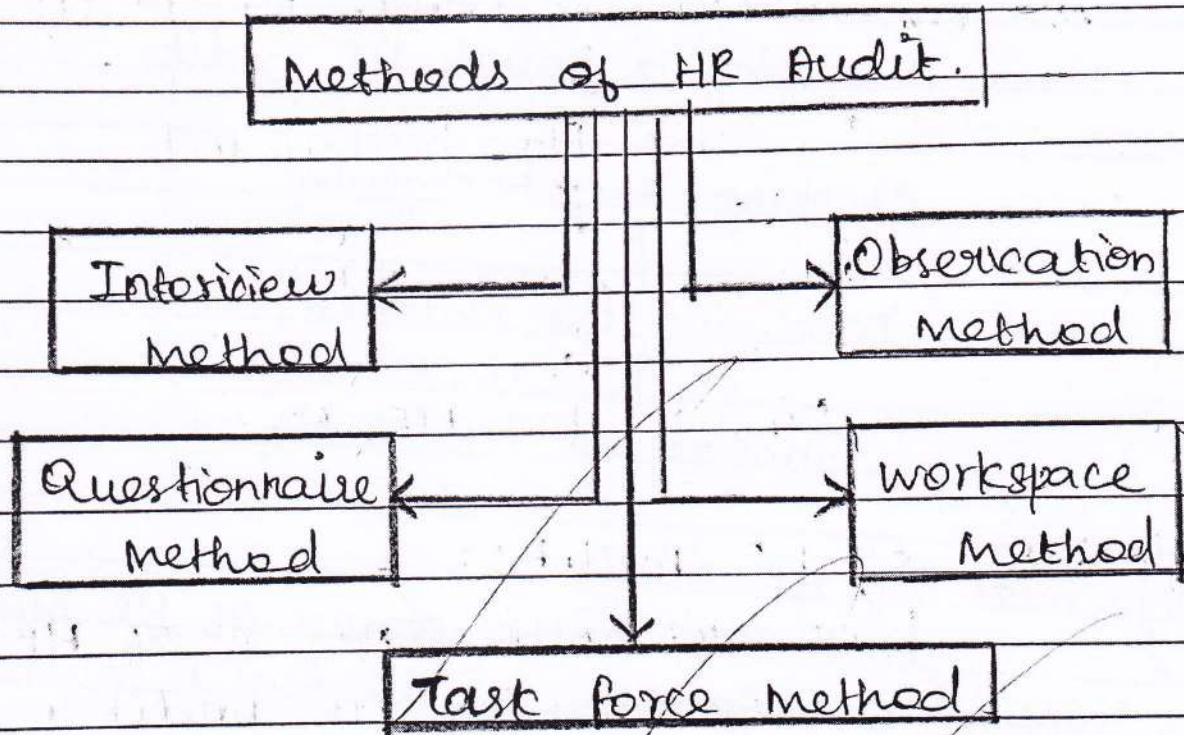 Methods of HR Audit.
Interview
Method
Observation
Method
Questionnaire
Method
workspace
Method
Task force Method